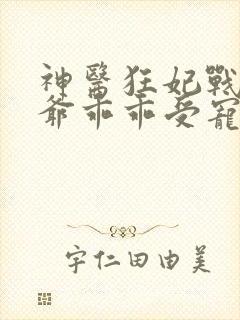 神醫狂妃戰
爺乖乖受寵
宇仁田由美